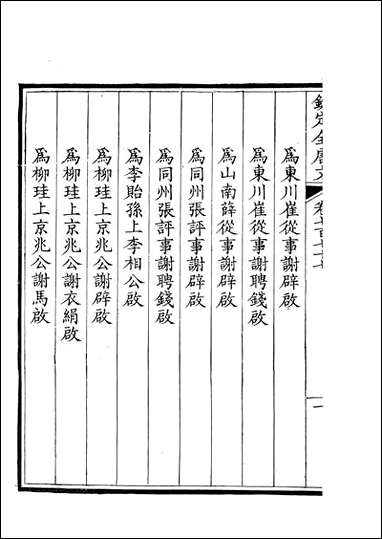 欽定全唐文 卷七百七十七 一
為東川崔從事謝辟啟
為東川崔從事謝聘錢啟
為山南薛從事謝辟啟
為同州張評事謝辟啟
為同州張評事謝聘錢啟
為李貽孫上李相公啟
為柳珪上京兆公謝辟啟
為柳珪上京兆公謝衣絹啟
為柳珪上京兆公謝馬啟